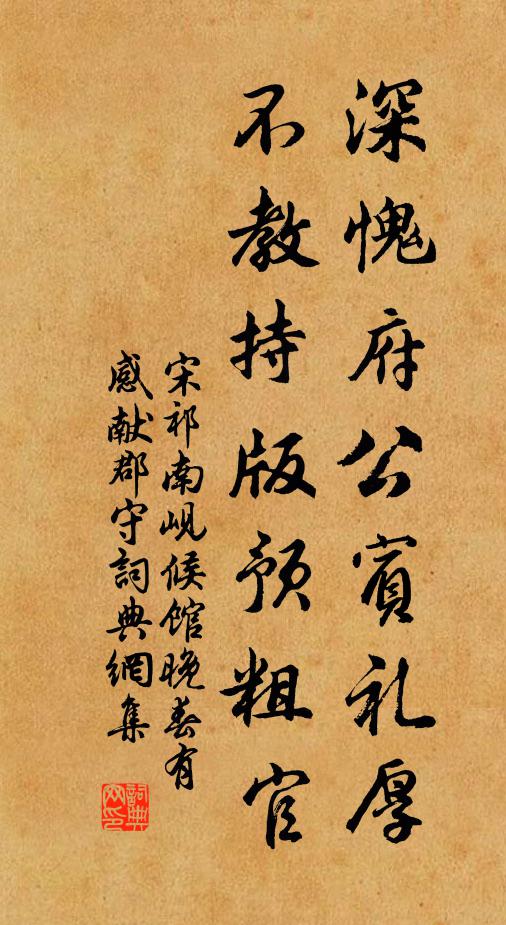 深愧府公賓礼厚
不教持版预粗官
宋祁南峴候馆晚春有
感献郡守詞典網集
詞典网印